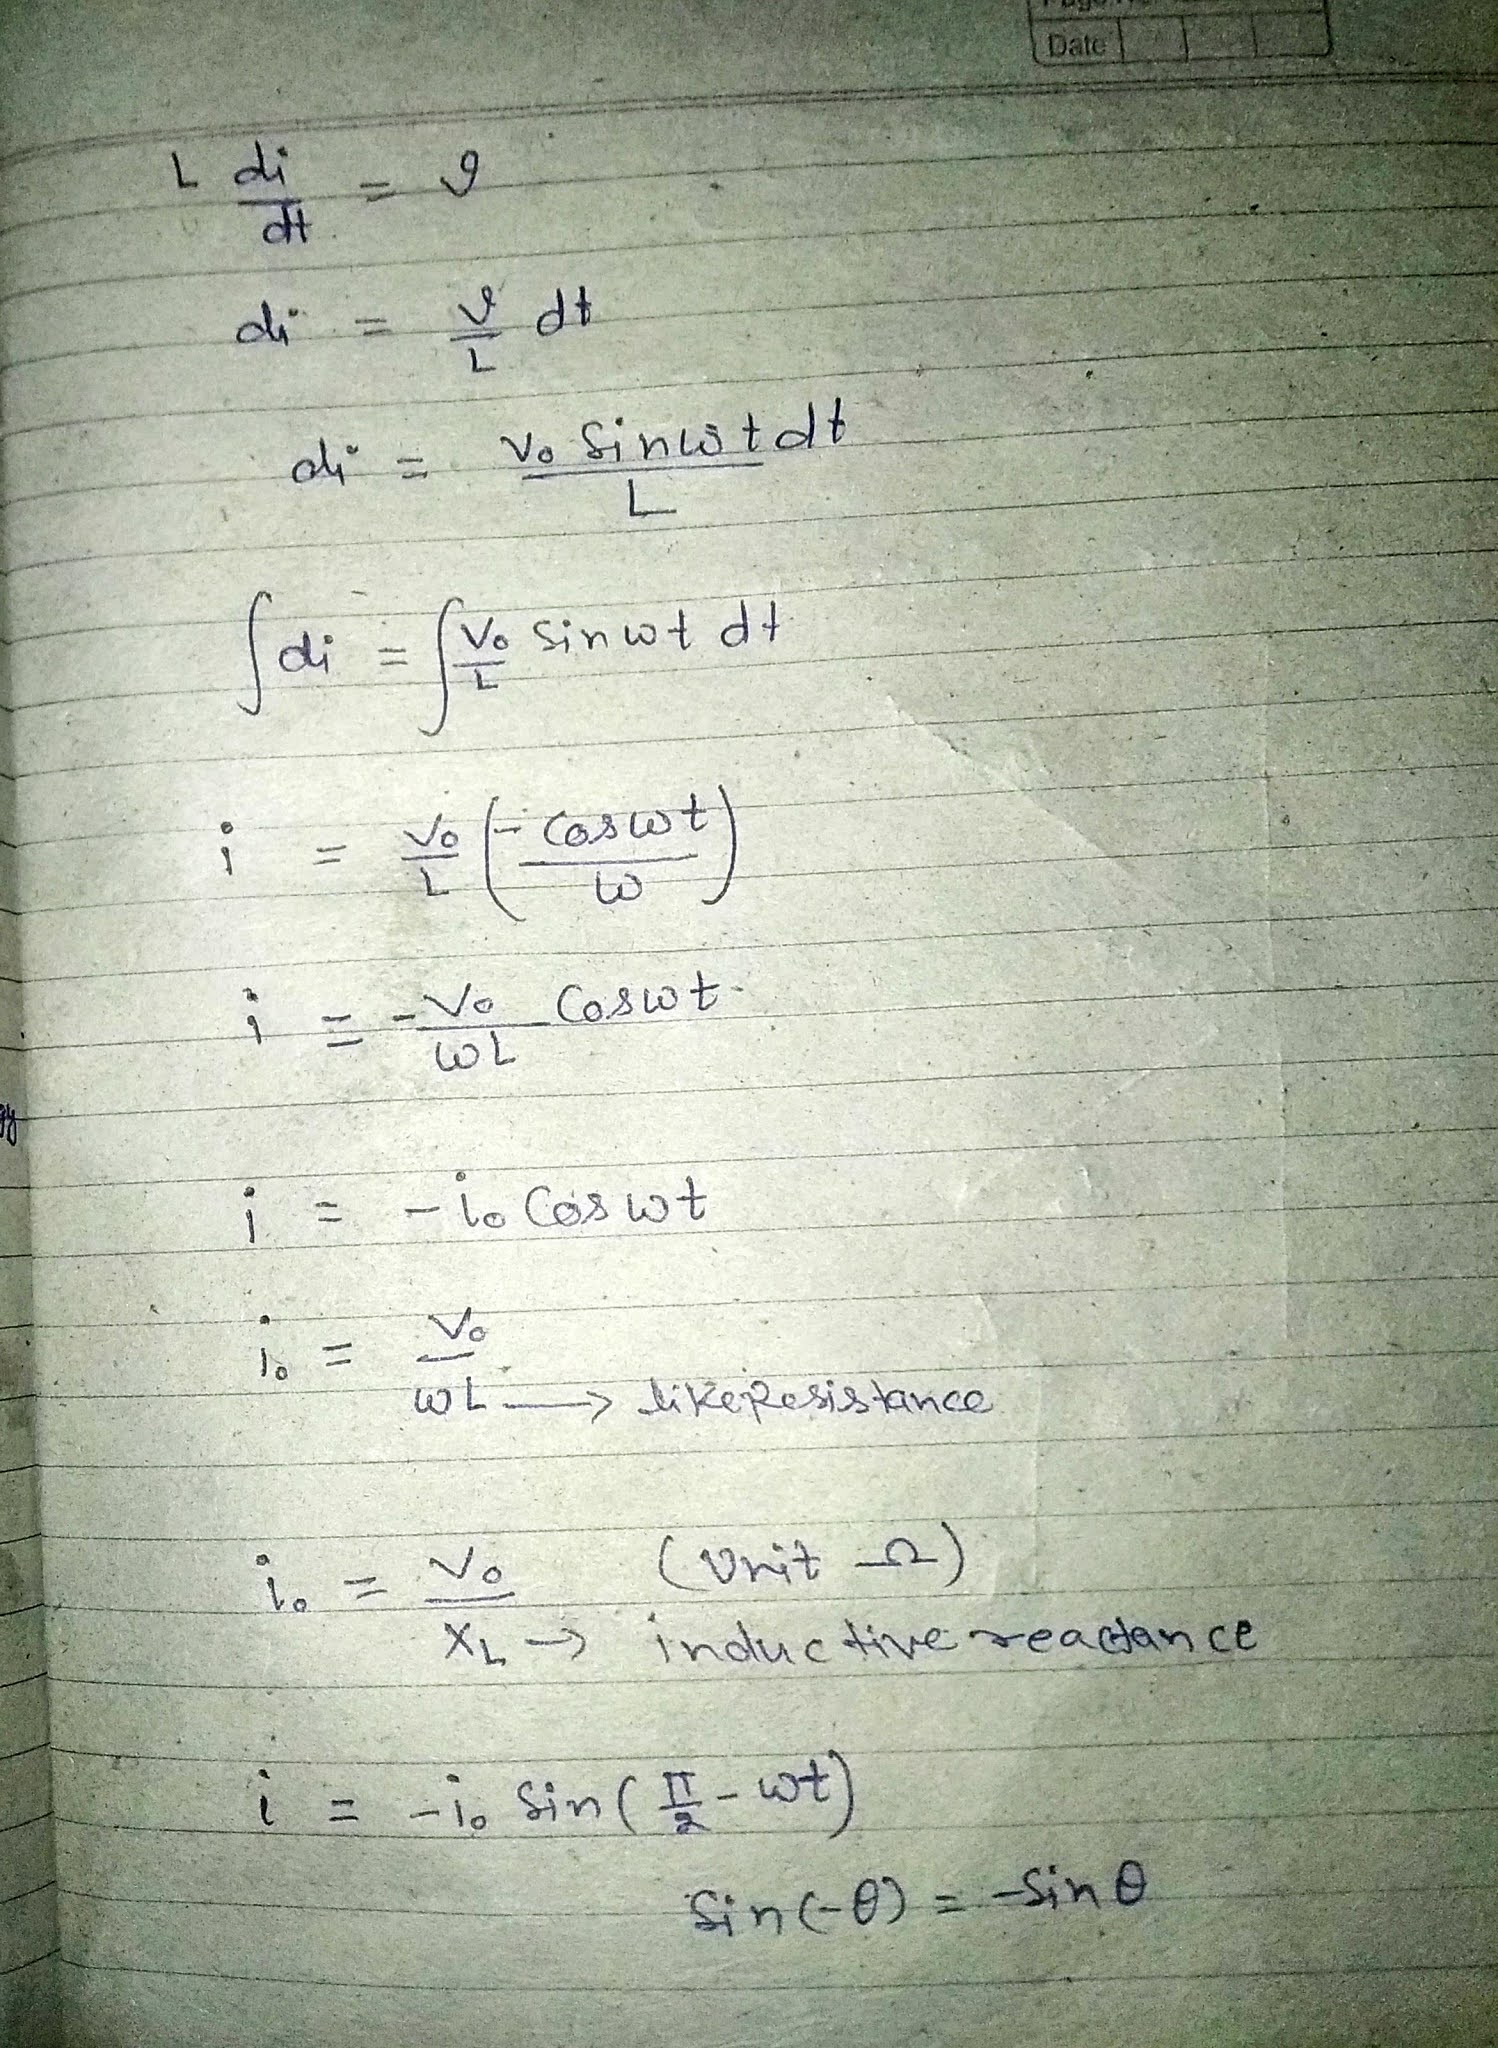 Date
L di/dt = v
di = v/L dt
di = V₀ sinωt dt / L
∫di = ∫V₀/L sinωt dt
i = V₀/L (-cosωt/ω)
i = -V₀/ωL cosωt
i = -i₀ cosωt
i₀ = V₀/ωL → like Resistance
i₀ = V₀/X_L (Unit Ω)
→ inductive reactance
i = -i₀ sin(π/2 - ωt)
sin(-θ) = -sinθ